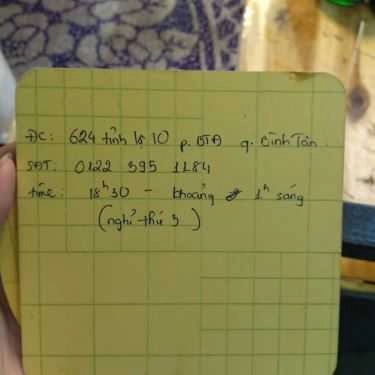 ĐC: 624 tỉnh lộ 10 p. BTĐ q. Bình Tân.
SĐT: 0122 395 1184
time: 18h30 - khoảng 1h sáng
(nghỉ thứ 3)